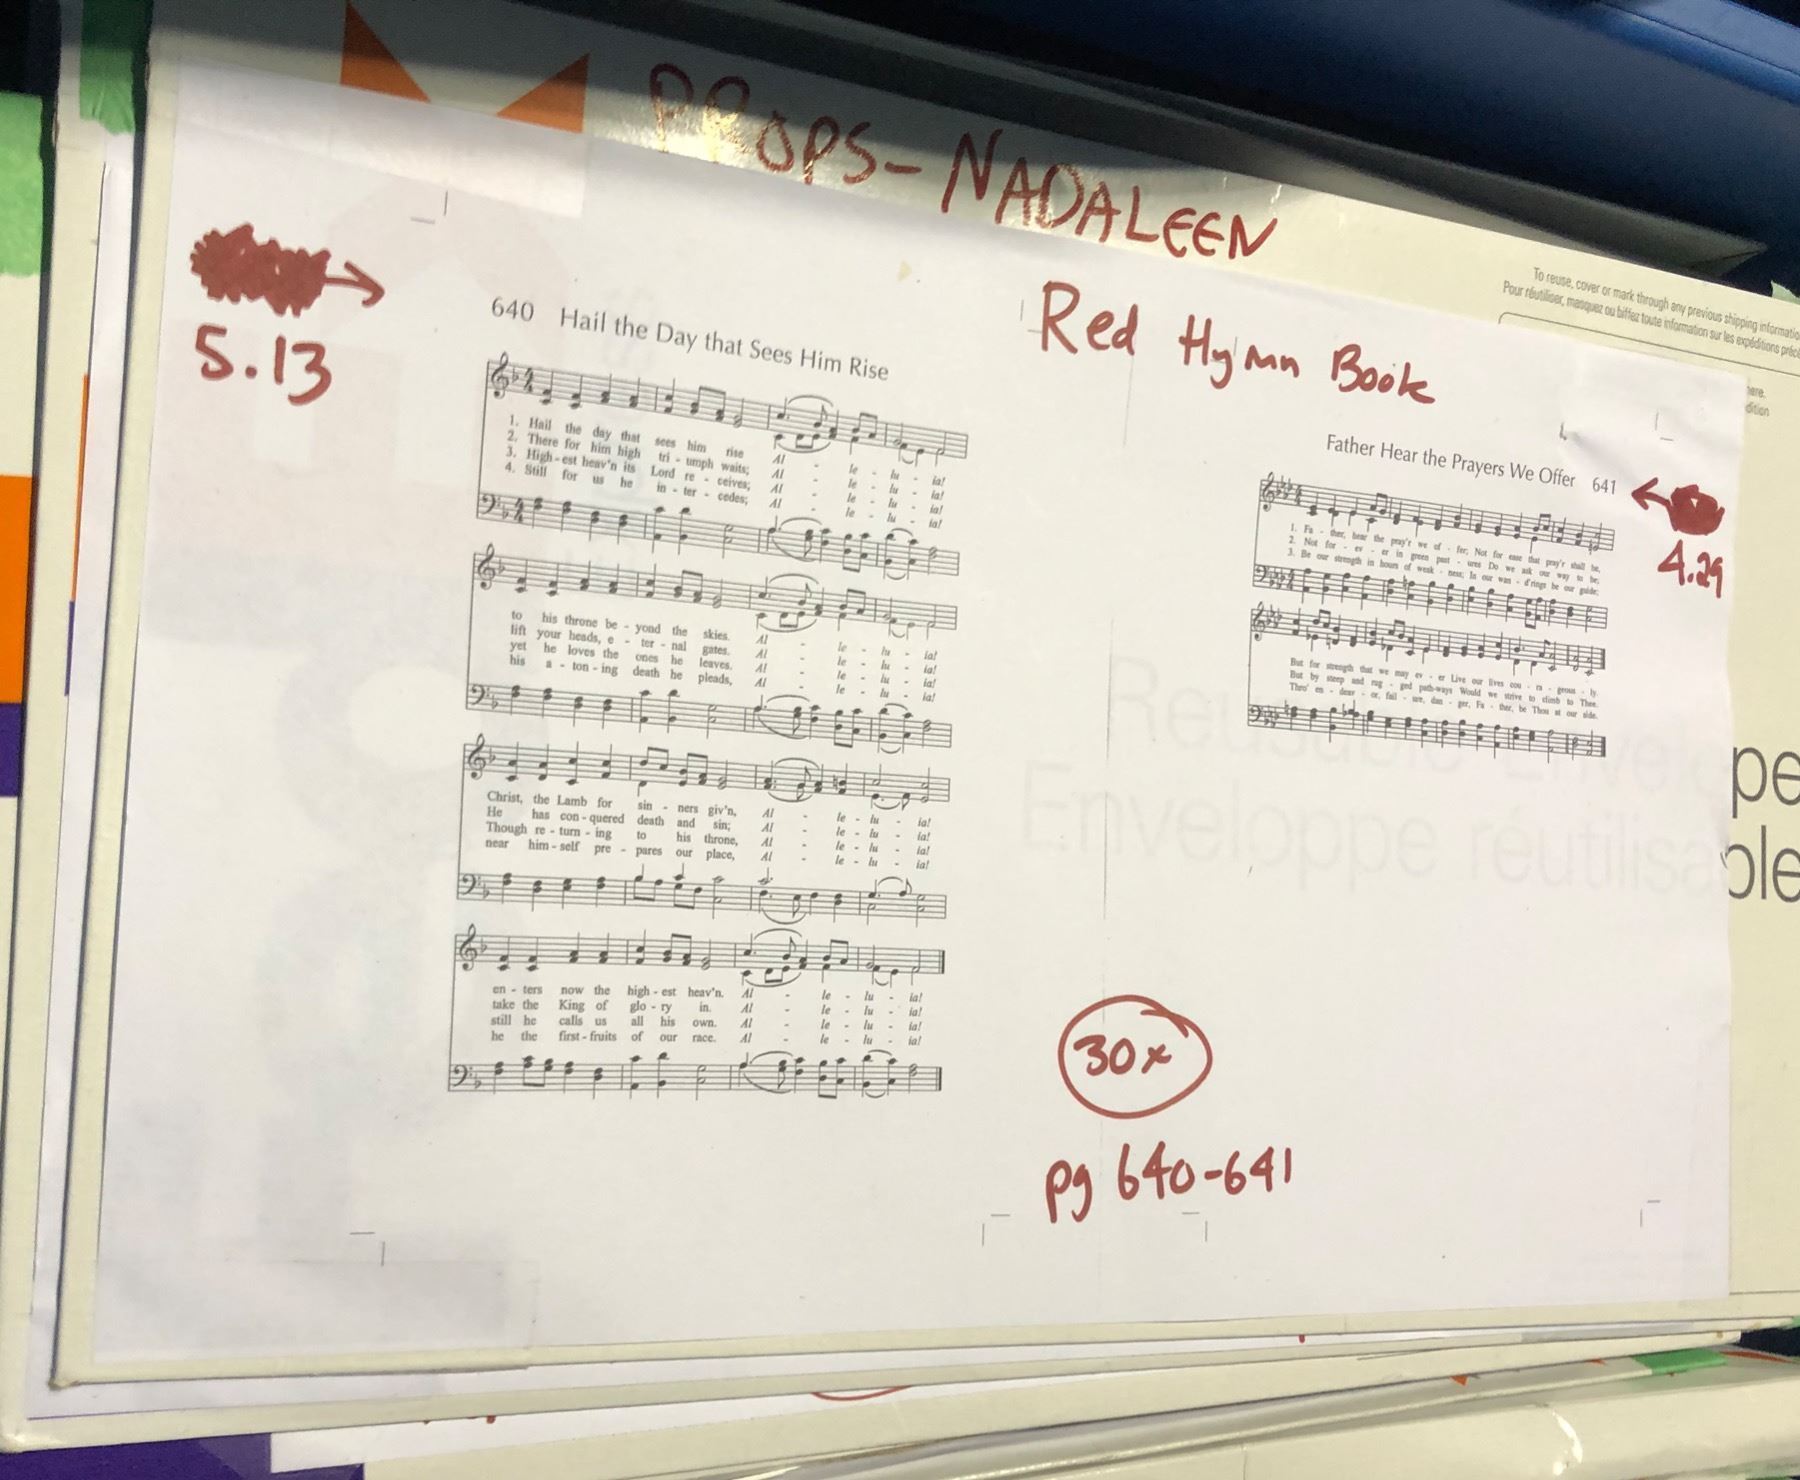 PROPS-NADALEEN
To reuse, cover or mark through any previous shipping informatio
Pour réutiliser, masquez ou biffez toute information sur les expéditions préc
ere.
dition
5.13
640 Hail the Day that Sees Him Rise
1. Hail the day that sees him rise Al - le - lu - ia!
2. There for him high tri - umph waits; Al - le - lu - ia!
3. High - est heav'n its Lord re - ceives; Al - le - lu - ia!
4. Still for us he in - ter - cedes; Al - le - lu - ia!
to his throne be - yond the skies. Al - le - lu - ia!
lift your heads, e - ter - nal gates. Al - le - lu - ia!
yet he loves the ones he leaves. Al - le - lu - ia!
his a - ton - ing death he pleads, Al - le - lu - ia!
Christ, the Lamb for sin - ners giv'n, Al - le - lu - ia!
He has con - quered death and sin; Al - le - lu - ia!
Though re - turn - ing to his throne, Al - le - lu - ia!
near him - self pre - pares our place, Al - le - lu - ia!
en - ters now the high - est heav'n. Al - le - lu - ia!
take the King of glo - ry in. Al - le - lu - ia!
still he calls us all his own. Al - le - lu - ia!
he the first - fruits of our race. Al - le - lu - ia!
Red Hymn Book
Father Hear the Prayers We Offer 641
4.29
1. Fa - ther, hear the pray'r we of - fer; Not for ease that pray'r shall be,
2. Not for - ev - er in green past - ures Do we ask our way to be;
3. Be our strength in hours of weak - ness; In our wan - d'rings be our guide;
But for strength that we may ev - er Live our lives cou - ra - geous - ly.
But by steep and rug - ged path-ways Would we strive to climb to Thee.
Thro' en - deav - or, fail - ure, dan - ger, Fa - ther, be Thou at our side.
Reusable Envelope
Enveloppe réutilisable
30x
pg 640-641